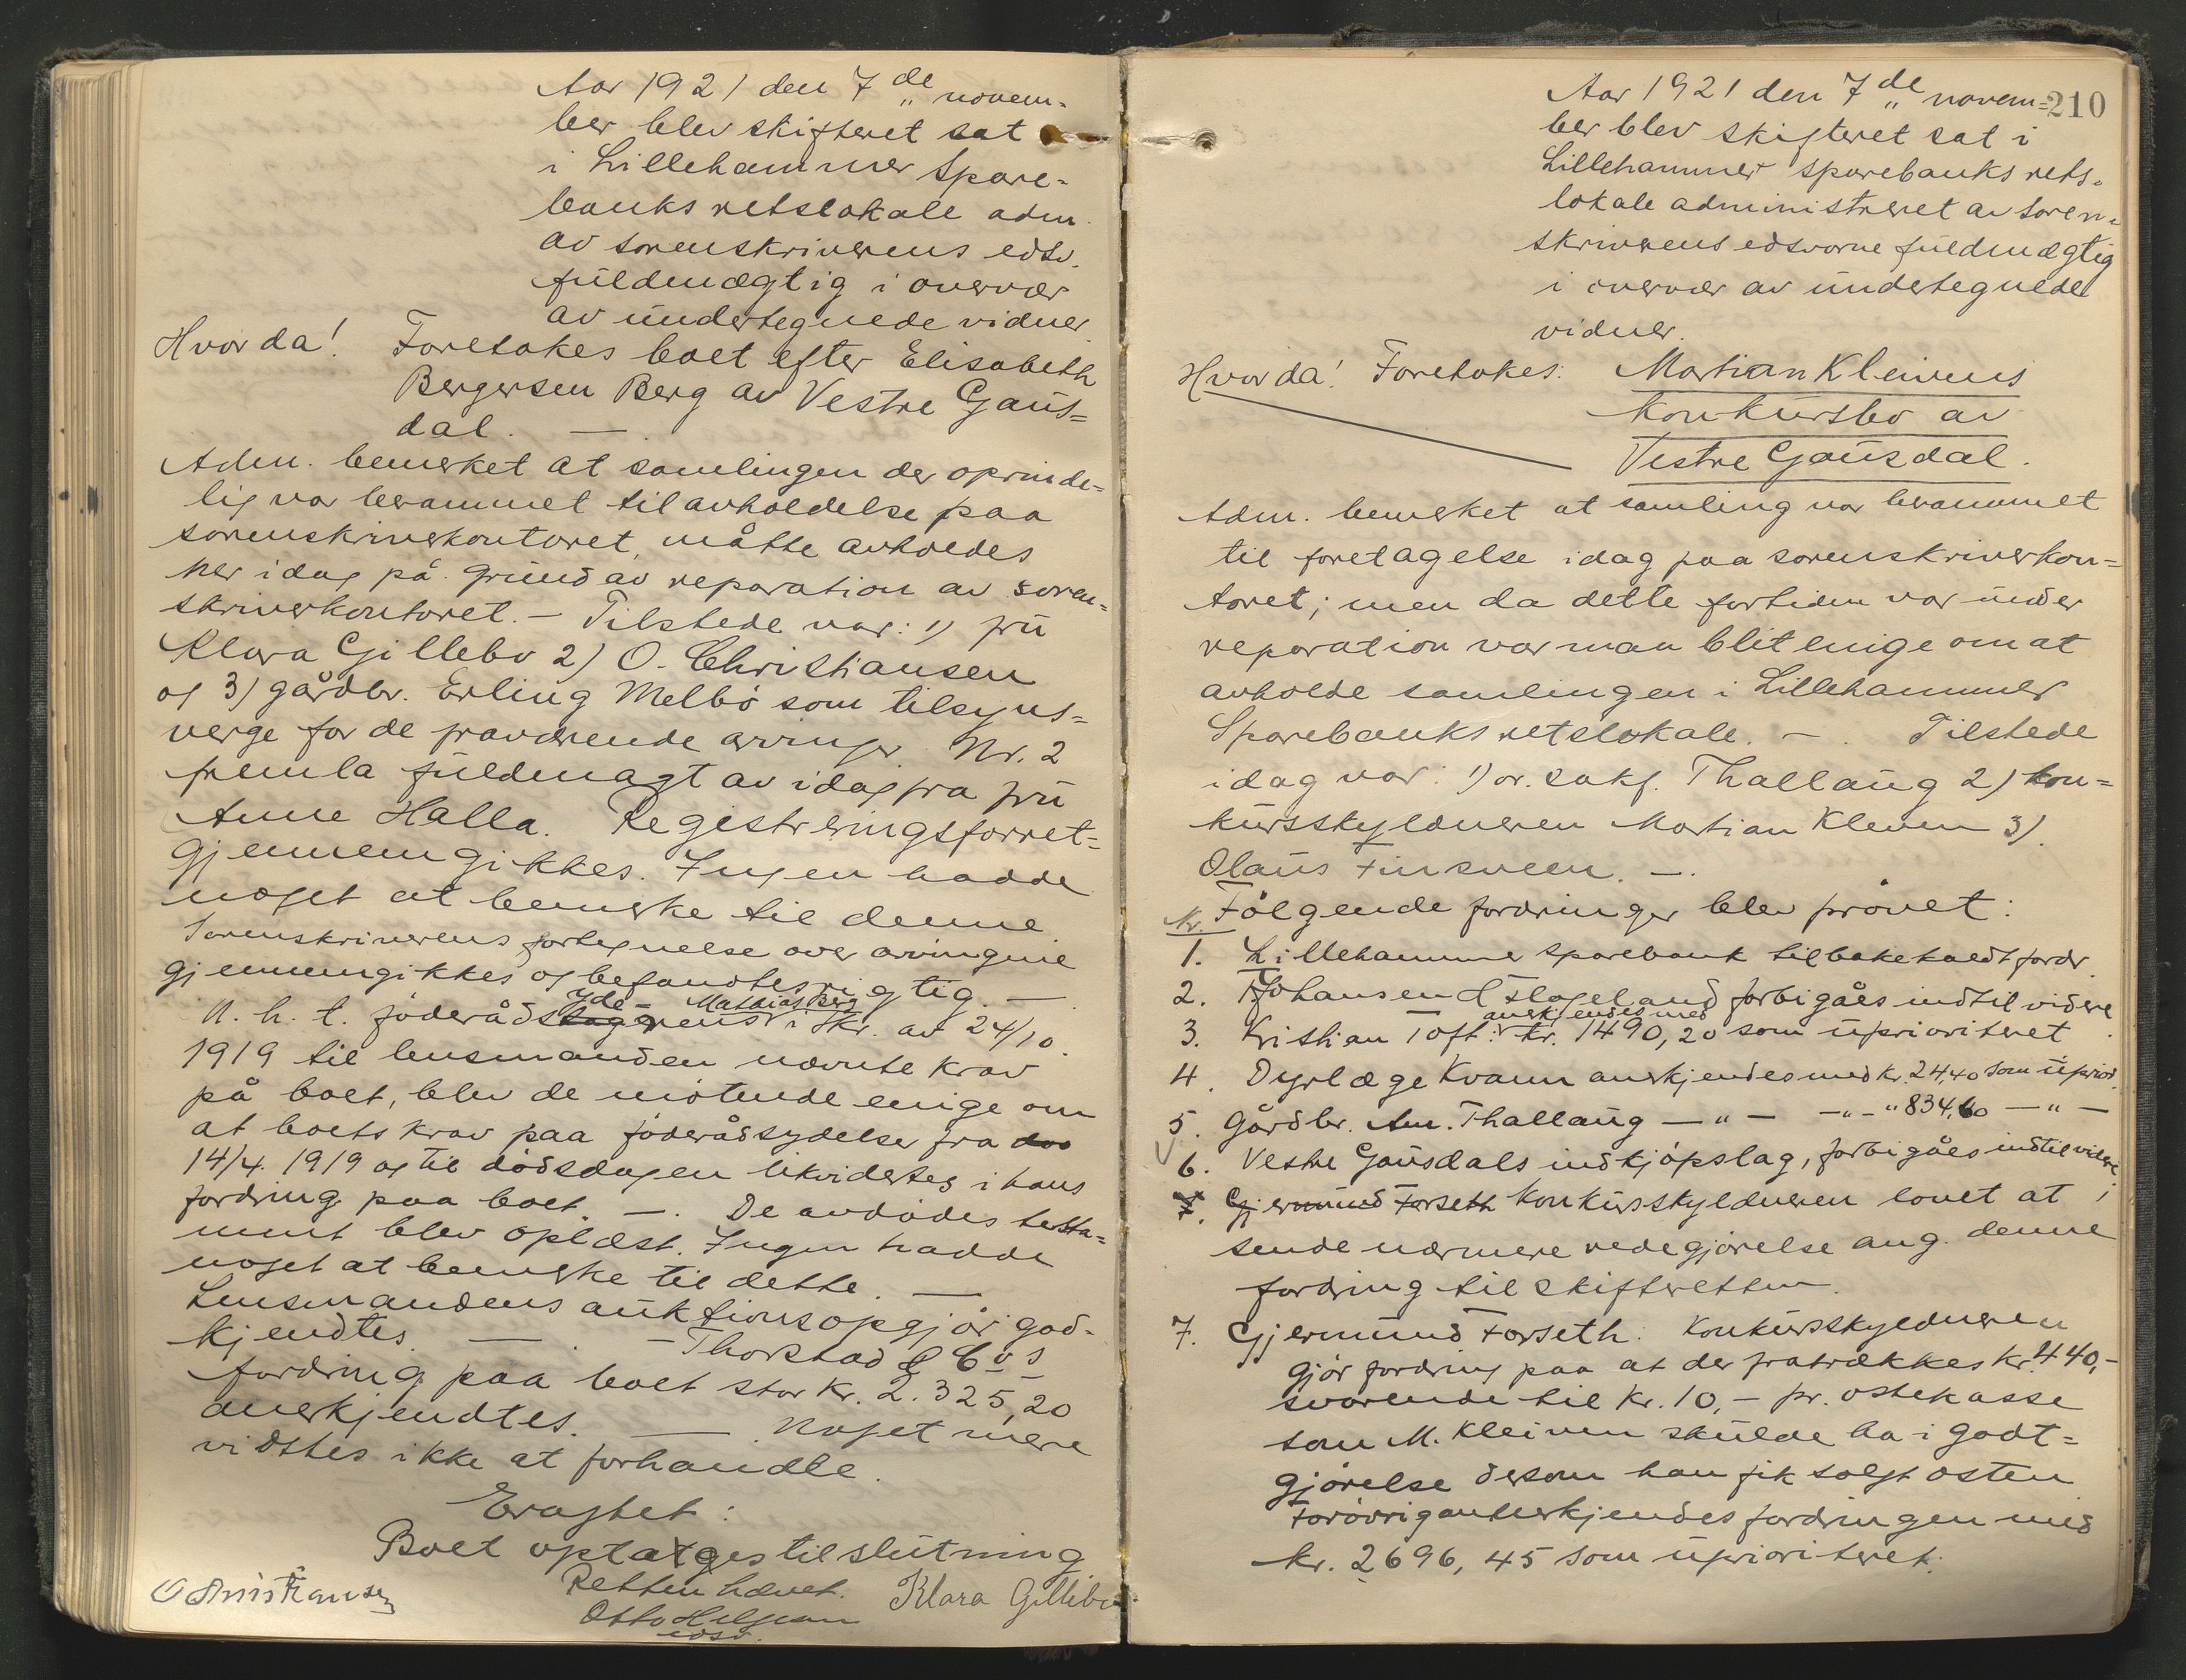 Aar 1921 den 7de novem-
ber blev skifteret sat
i Lillehammer Spare-
banks retslokale adm.
av sorenskriverens edsv.
fuldmægtig i overvær
av undertegnede vidner
Hvor da! Foretokes boet efter Elisabeth
Bergersen Berg av Vestre Gaus=
dal. —
Adm. bemerket at samlingen der oprinde-
lig var berammet til avholdelse paa
sorenskriverkontoret, måtte avholdes
her idag på grund av reparation av soren-
skriverkontoret. — Tilstede var: 1) fru
Klara Gillebo 2) O. Christiansen
og 3) gårdbr. Erling Melbö som tilsyns=
verge for de fraværende arvinger. Nr. 2
fremla fuldmagt av idag fra fru
Anne Halla. Registreringsforret-
gjennemgikkes. Ingen hadde
noget at bemerke til denne
Sorenskriverens fortegnelse over arvingene
gjennemgikkes og befandtes rigtig. —
A. h. t. föderådsyde- Mathias Berg
rens i skr. av 24/10.
1919 til lensmanden nævnte krav
på boet, blev de møtende enige om
at boets krav paa föderådsydelser fra dos
14/4. 1919 og til dödsdagen likvidertes i hans
fordring paa boet. —. De avdödes testa=
ment blev oplæst. Ingen hadde
noget at bemerke til dette. —
Lensmandens auktionsopgjör god-
kjendtes. — — Thorstad & Cos
fordring paa boet stor kr. 2.325,20
anerkjendtes. — Noget mere
vidstes ikke at forhandle.
Eragtet:
Boet optages til slutning
Retten hævet.
O Christiansen Klara Gillebo
Otto
edsv.
210
Aar 1921 den 7de novem=
ber blev skifteret sat i
Lillehammer sparebanks rets-
lokale administreret av soren-
skriverens edsvorne fuldmægtig
i overvær av undertegnede
vidner.
Hvor da! Foretokes: Martian Kleivens
Konkursbo av
Vestre Gausdal.
Adm. bemerket at samling var berammet
til foretagelse idag paa sorenskriverkon=
toret; men da dette fortiden var under
reparation var man blit enige om at
avholde samlingen i Lillehammer
Sparebanks retslokale. —. Tilstede
idag var: 1) or. sakf. Thallaug 2) kon=
kursskyldneren Martian Kleven 3)
Olaus Finsveen. —.
Nr. Fölgende fordringer blev prövet:
1. Lillehammer sparebank tilbakekaldt fordr.
2. Johansen & Flageland forbigåes indtil videre
3. Kristian Toft: anerkjendes med kr. 1490,20 som uprioriteret
4. Dyrlæge Kvam anerkjendes med kr. 24,40 som upriod.
5. Gårdbr. Am. Thallaug — " — — " — " 834,60 — " —
6. Vestre Gausdals indkjöpslag, forbigåes indtil videre
7. Gjermund Forseth Konkursskyldneren lovet at i
sende nærmere redegjörelse ang. denne
fordring til skifteretten.
7. Gjermund Forseth: Konkursskyldneren
gjör fordring paa at der fratrækkes kr. 440,-
svarende til kr. 10,- pr. ostekasse
som M. Kleiven skulde ha i godt=
gjörelse dersom han fik solgt osten
Forövrig anerkjendes fordringen med
kr. 2696,45 som uprioriteret.